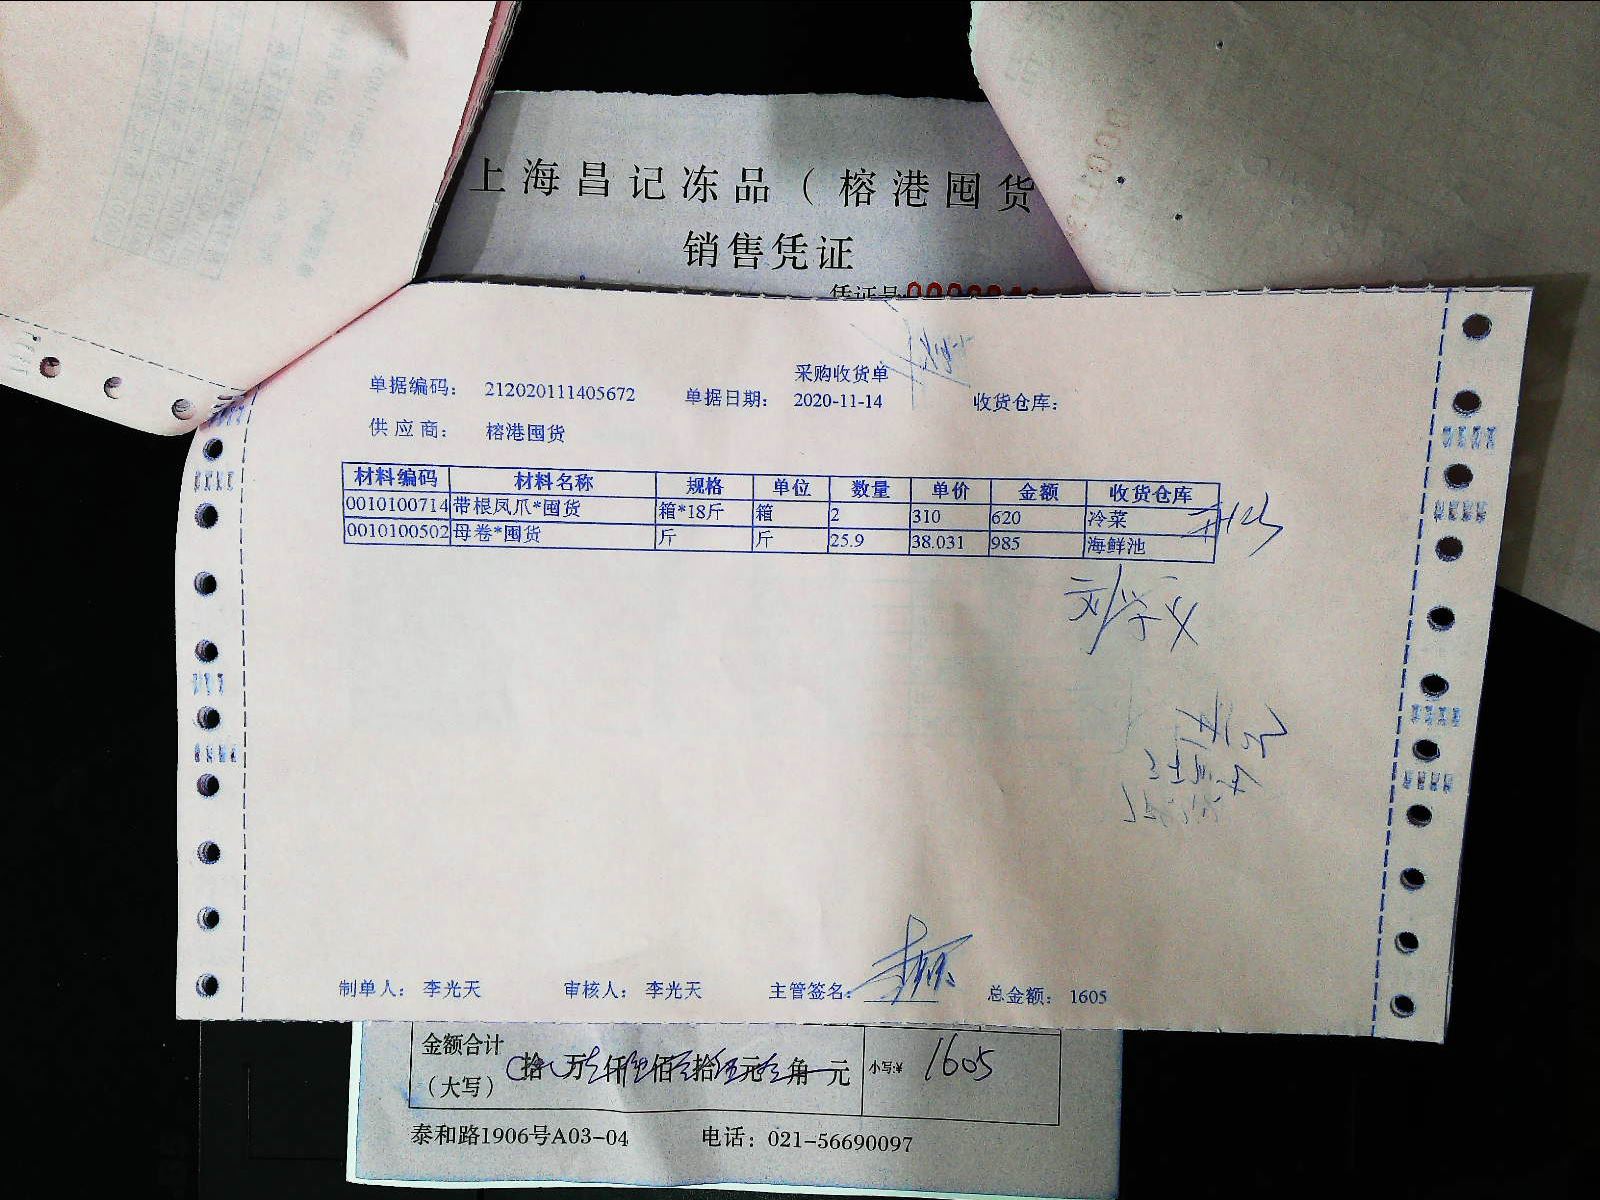 上海昌记冻品（榕港囤货
销售凭证
凭证号
采购收货单
单据编码： 212020111405672 单据日期： 2020-11-14 收货仓库：
供应商： 榕港囤货
材料编码 材料名称 规格 单位 数量 单价 金额 收货仓库
0010100714 带根凤爪*囤货 箱*18斤 箱 2 310 620 冷菜
0010100502 母卷*囤货 斤 斤 25.9 38.031 985 海鲜池
刘学义
制单人： 李光天 审核人： 李光天 主管签名： 总金额： 1605
金额合计
（大写） 拾 万 仟 佰 拾 元 角 元 小写:¥ 1605
泰和路1906号A03-04 电话：021-56690097